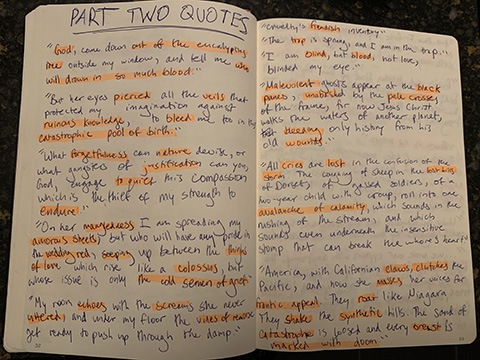 PART TWO QUOTES
"God, come down out of the eucalyptus
tree outside my window, and tell me who
will drown in so much blood."
"But her eyes pierced all the veils that
protected my imagination against
ruinous knowledge, to bleed me too in the
catastrophic pool of birth."
"What forgetfulness can nature devise, or
what gangsters of justification can you,
God, engage to quiet this compassion
which is the thief of my strength to
endure."
"On her mangledness I am spreading my
amorous sheets, but who will have any pride in
the wedding red, seeping up between the thighs
of love which rise like a colossus, but
whose issue is only the cold semen of grief."
"My room echoes with the screams she never
uttered, and under my floor the vines of remorse
get ready to push up through the damp."
"Cruelty's fiendish inventory"
"The trap is sprung, and I am in the trap."
"I am blind, but blood, not love,
blinded my eye."
"Malevolent ghosts appear at the black
panes, unabated by the pale crosses
of the frames, for now Jesus Christ
walks the waters of another planet,
bleeding only history from his
old wounds."
"All cries are lost in the confusion of the
storm. The coughing of sheep on the lost hills
of Dorset, of gassed soldiers, of a
two-year child with croup, roll into one
avalanche of calamity, which sounds in the
rushing of the stream, and which
sounds even underneath the insensitive
stump that can break the whore's heart."
"America, with Californian claws, clutches the
Pacific, and now she masks her voices for
frantic appeal. They roar like Niagara
They shake the synthetic hills. The sand of
Catastrophe is loosed and every breast is
marked with doom."